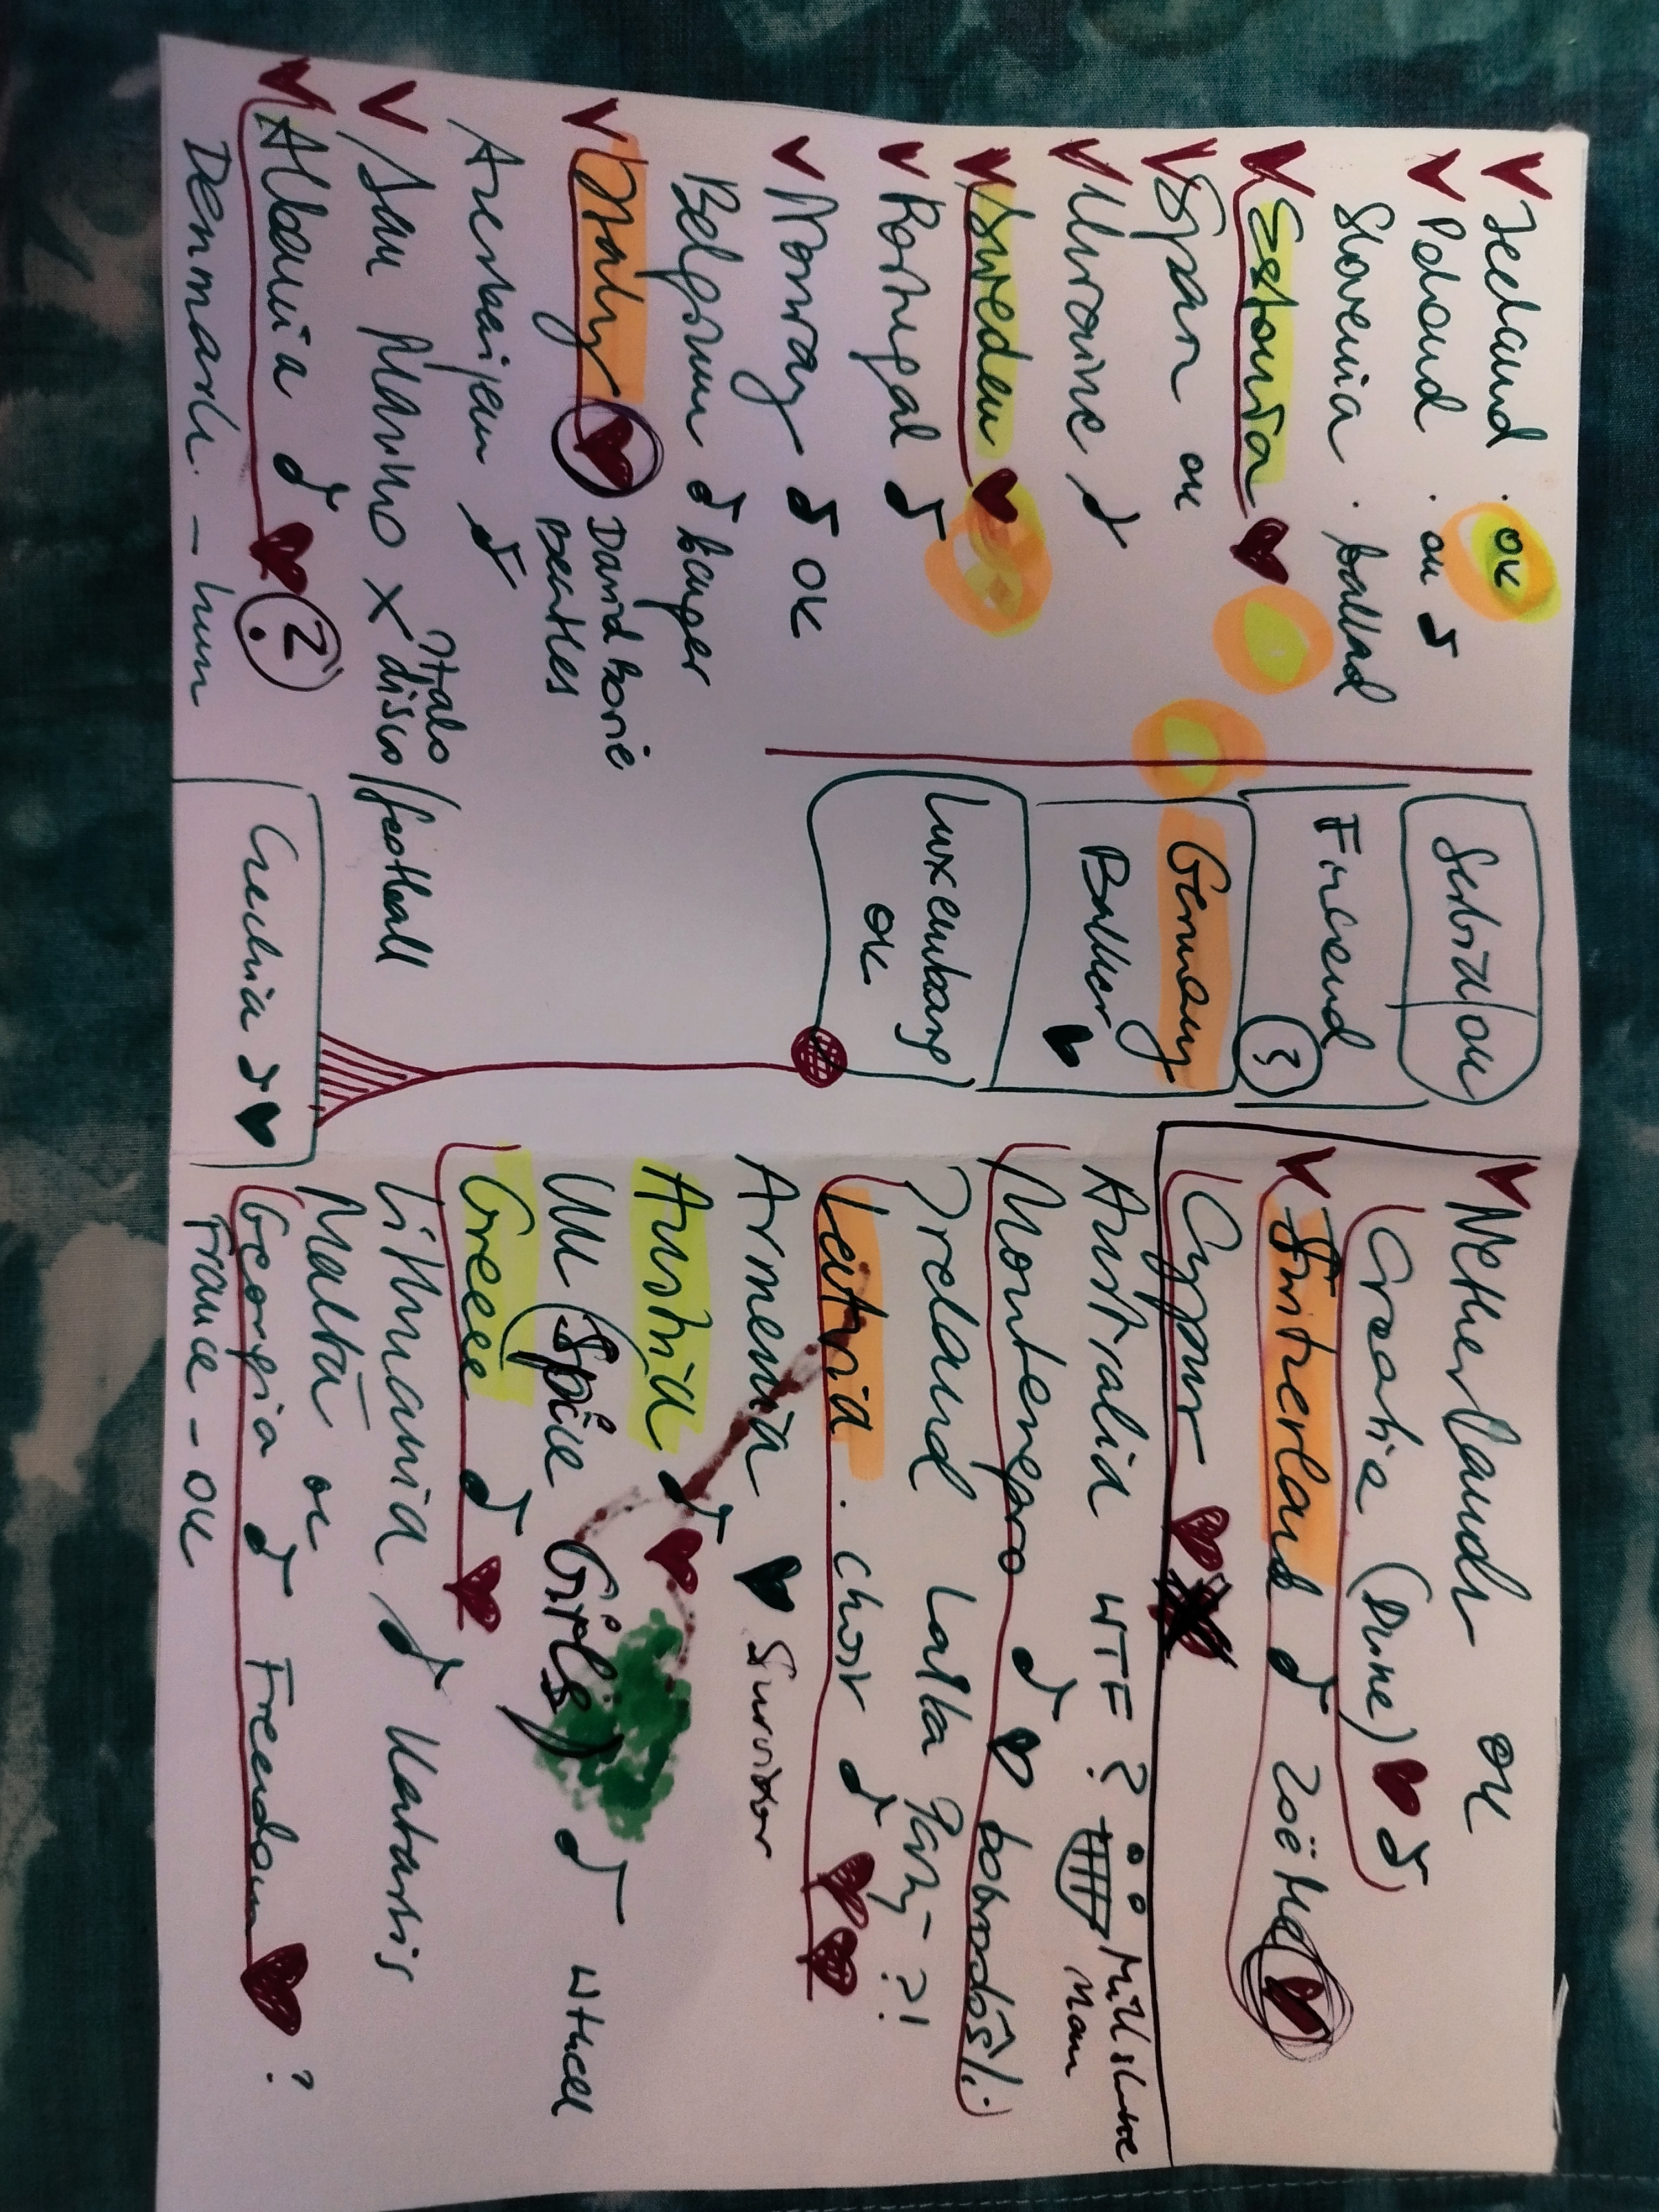 Iceland. OK
Poland. OK
Slovenia. ballad
Estonia
Spain OK
Ukraine
Sweden
Portugal
Norway OK
Belgium banger
Italy David Bowie
Beatles
Azerbaijan
San Marino X Italo
disco/football
Albania ?
Denmark. - hum
Serbia/OK
Finland
3
Germany
Baller
Luxembourg
OK
Czechia
Netherlands OK
Croatia (Dune)
Switzerland Zoë Më
Cyprus
Australia WTF? Milkshake
Man
Montenegro dobrodošli:)
Ireland Laika Party?!
Latvia. choir
Armenia Survivor
Austria
UK (Spice Girls) WHAT
Greece
Lithuania Katarsis
Malta OK
Georgia Freedom ?
France - OK